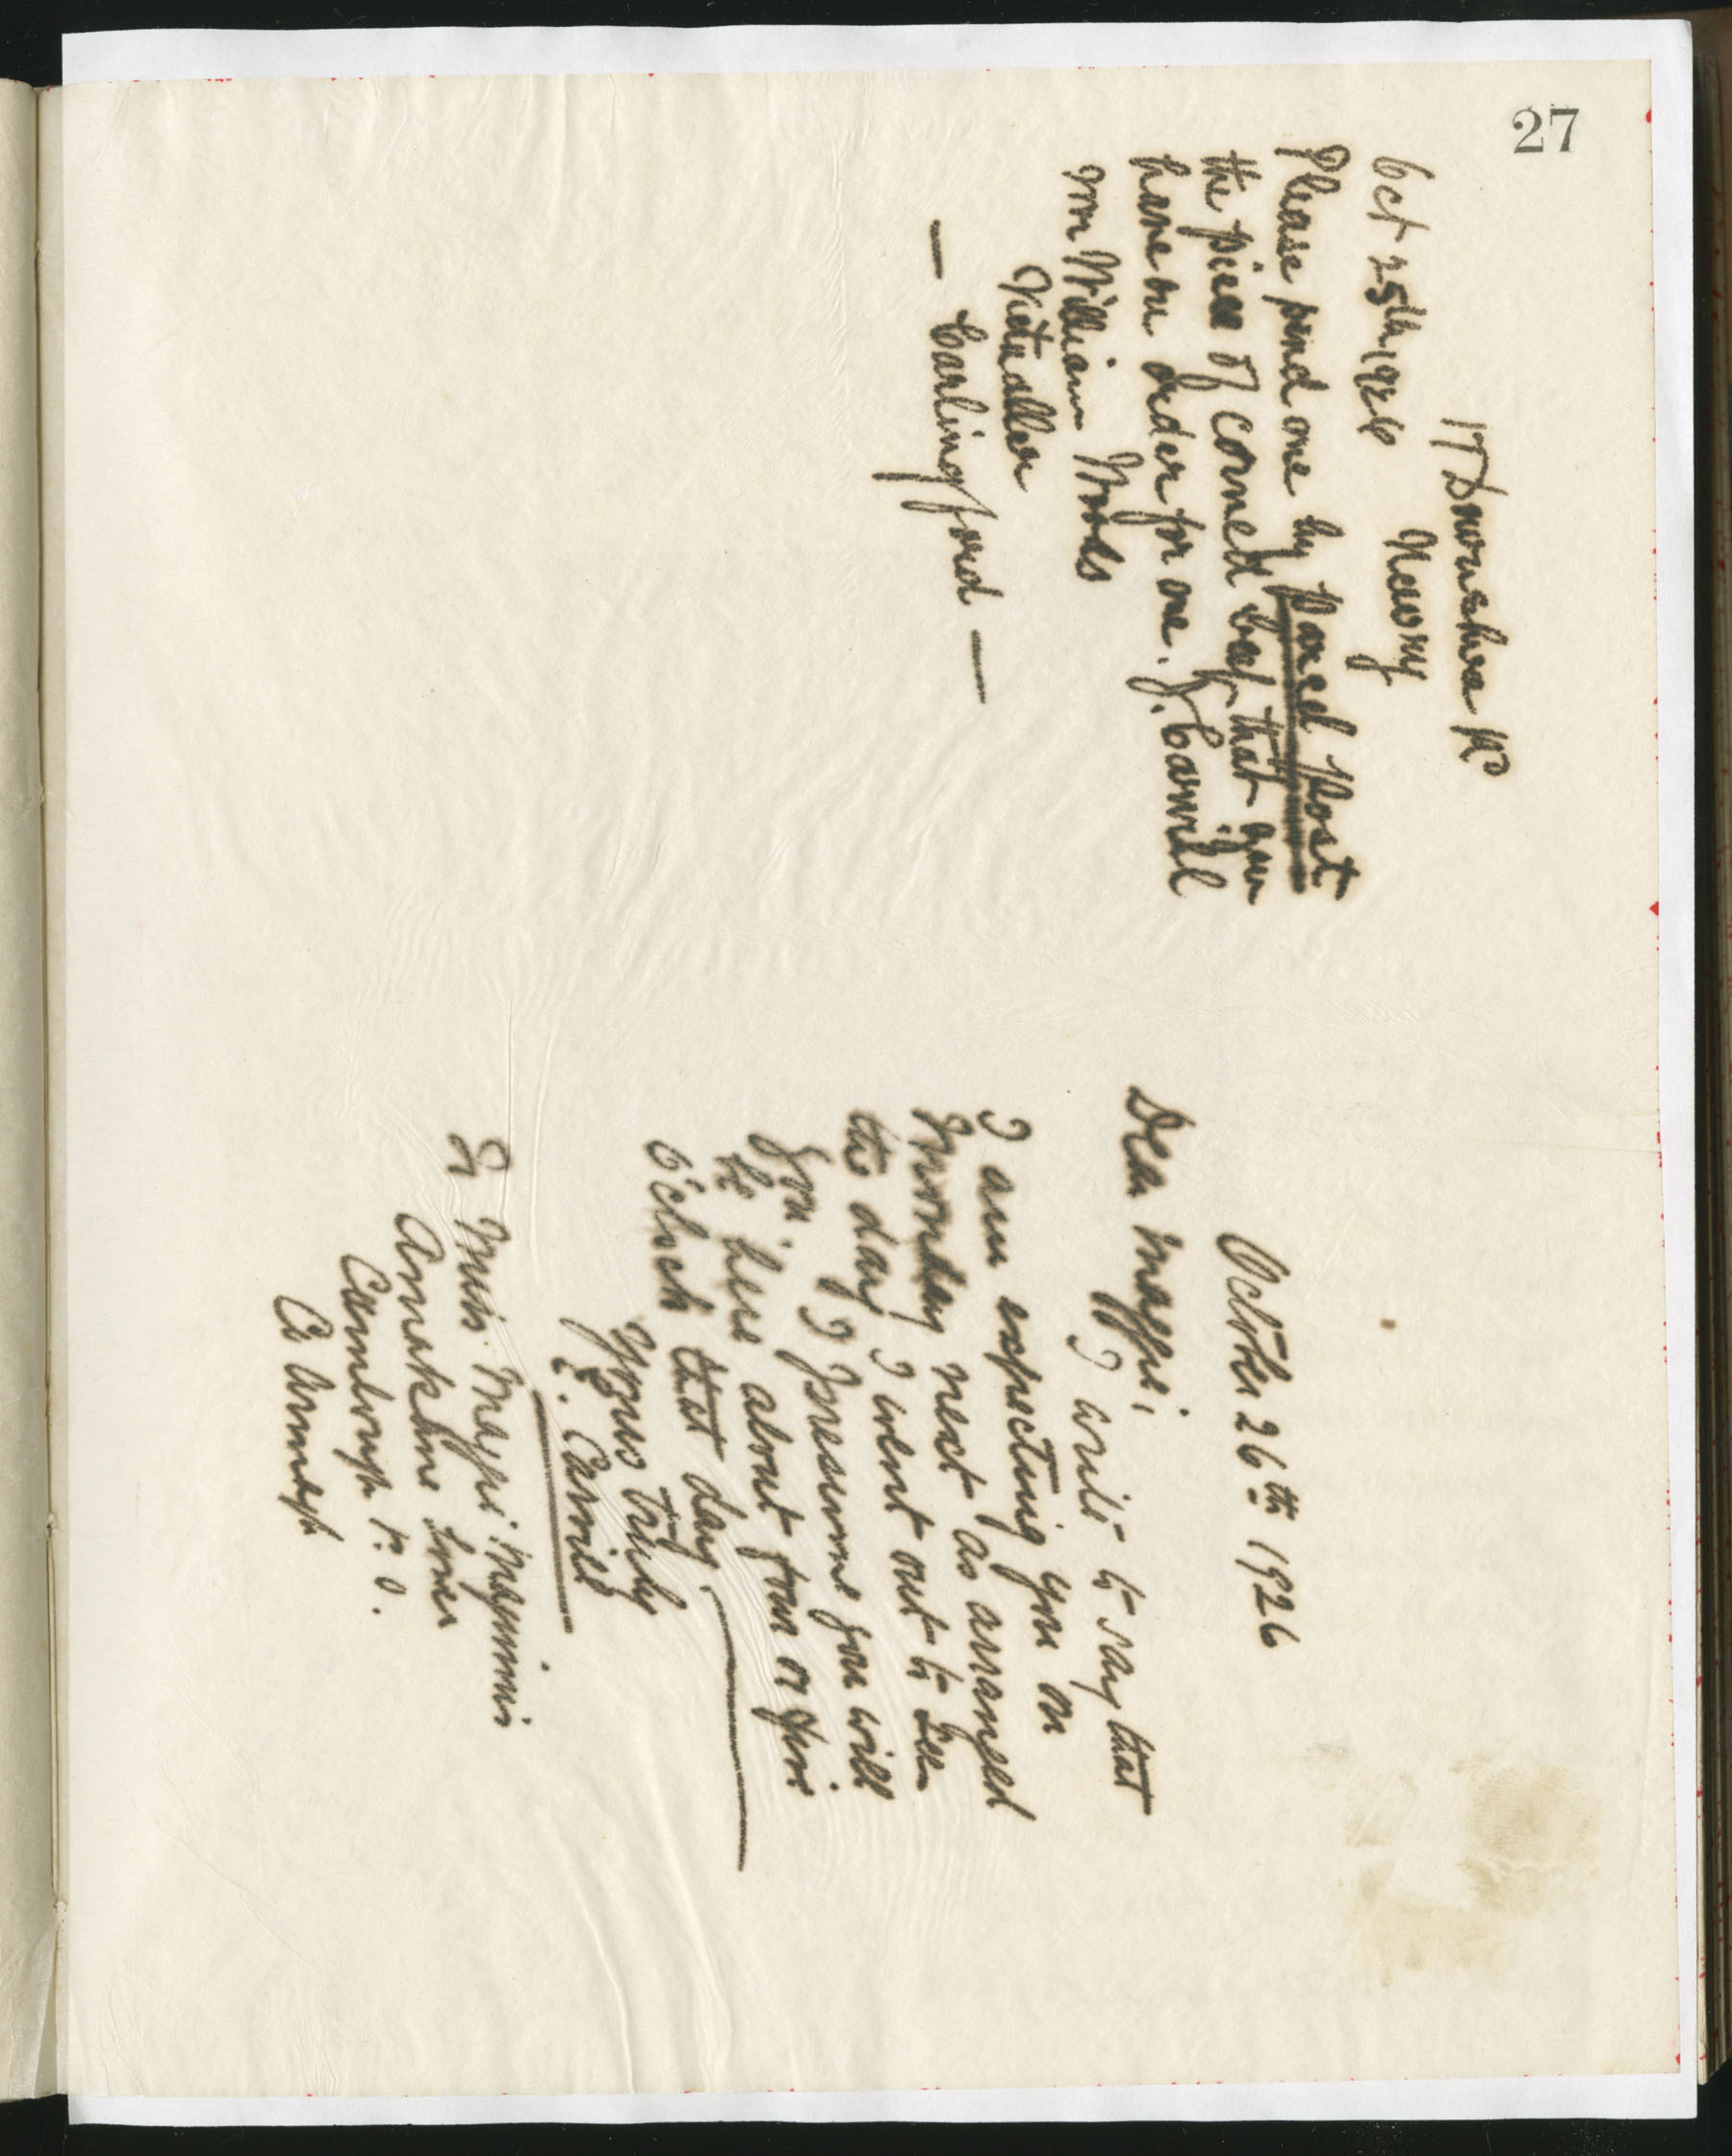 27
17 Downshire Rd
Newry
Oct 25th 1926
Please send one by parcel post
the piece of corned beef that you
have on order for me. J. Carvill
Mr William Woods
Victualler
— Carlingford —
October 26th 1926
Dear Maggie,
I write to say that
I am expecting you on
Monday next as arranged
the day I went out to see
you. I presume you will
be here about four or five
o'clock that day.
Yours truly
E. Carvill
To Miss Maggie Magennis
Camlough P. O.
Co Armagh